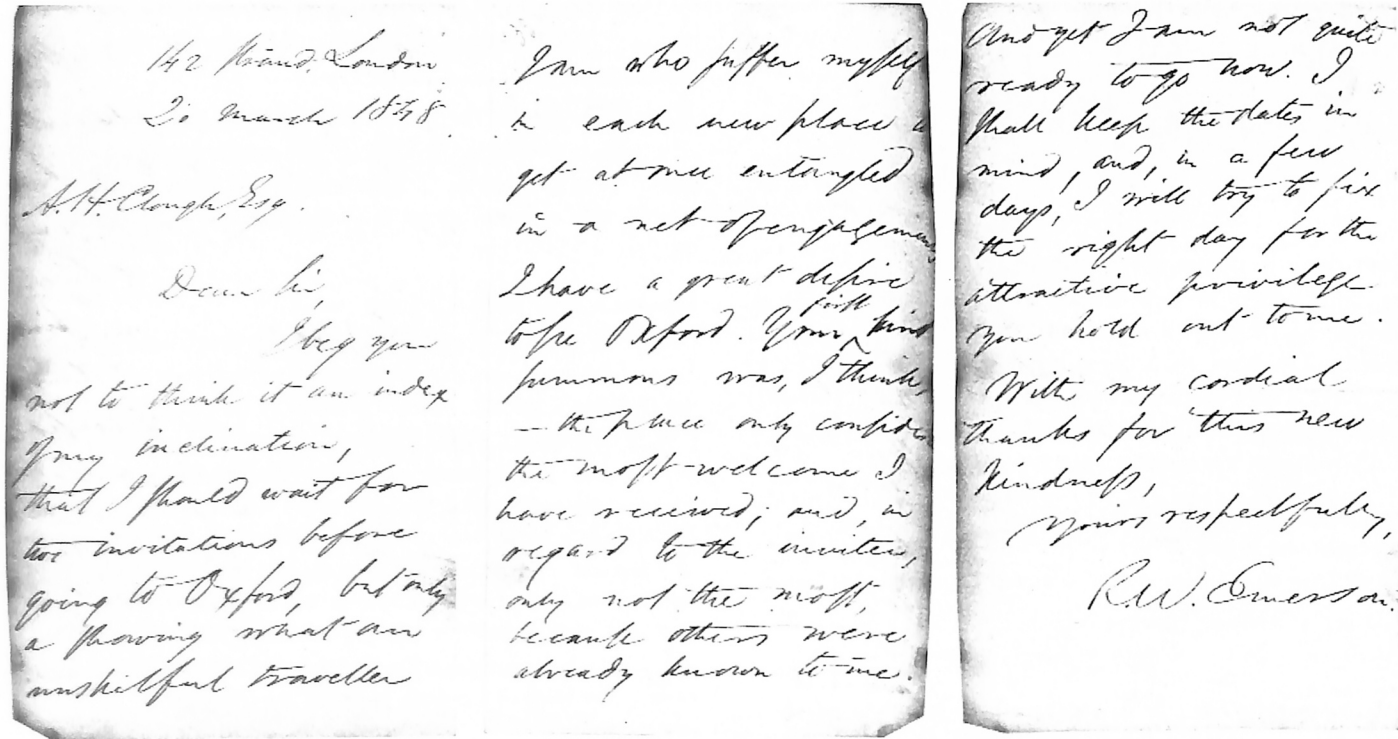 142 Strand. London.
20 March 1848.
A. H. Clough, Esq.
Dear Sir,
I beg you
not to think it an index
of my inclination,
that I should wait for
two invitations before
going to Oxford, but only
a showing what an
unskilful traveller
I am who suffer myself
in each new place to
get at once entangled
in a net of engagements
I have a great desire
to see Oxford. Your first kind
summons was, I think,
— the place only considered
the most welcome I
have received; and, in
regard to the inviter,
only not the most,
because others were
already known to me.
And yet I am not quite
ready to go now. I
shall keep the dates in
mind, and, in a few
days, I will try to fix
the right day for the
attractive privilege
you hold out to me.
With my cordial
thanks for this new
kindness,
Yours respectfully,
R. W. Emerson.